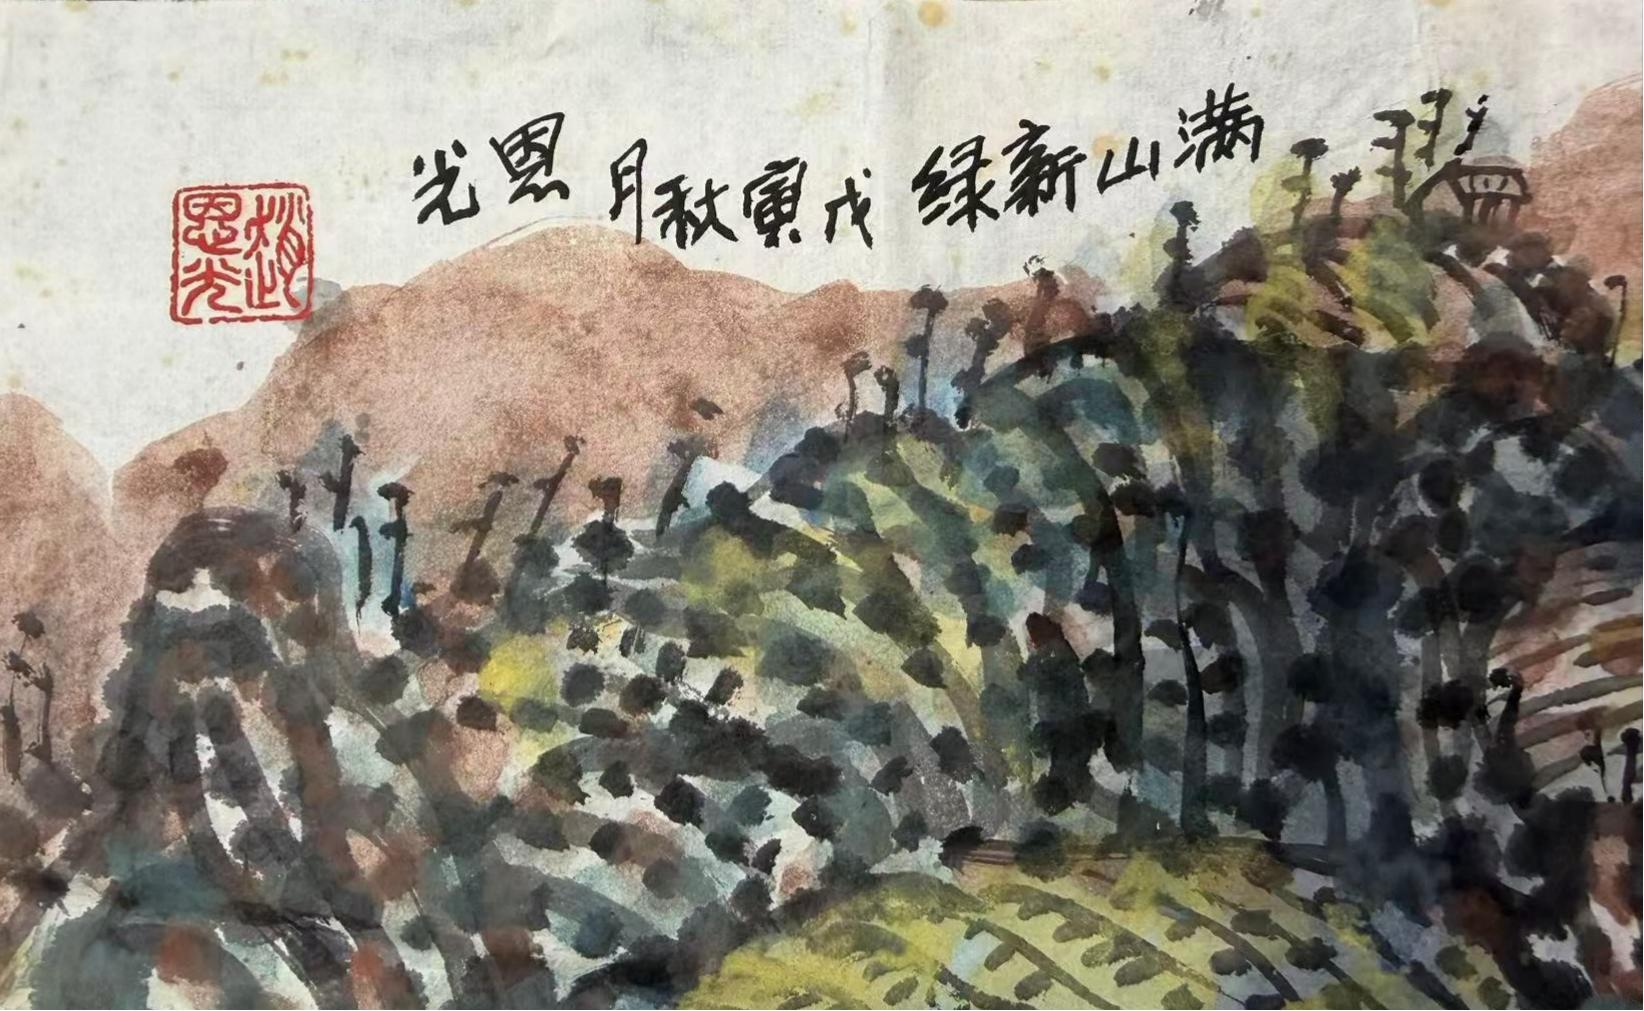 满山新绿 戊寅秋月 恩光
趙恩光